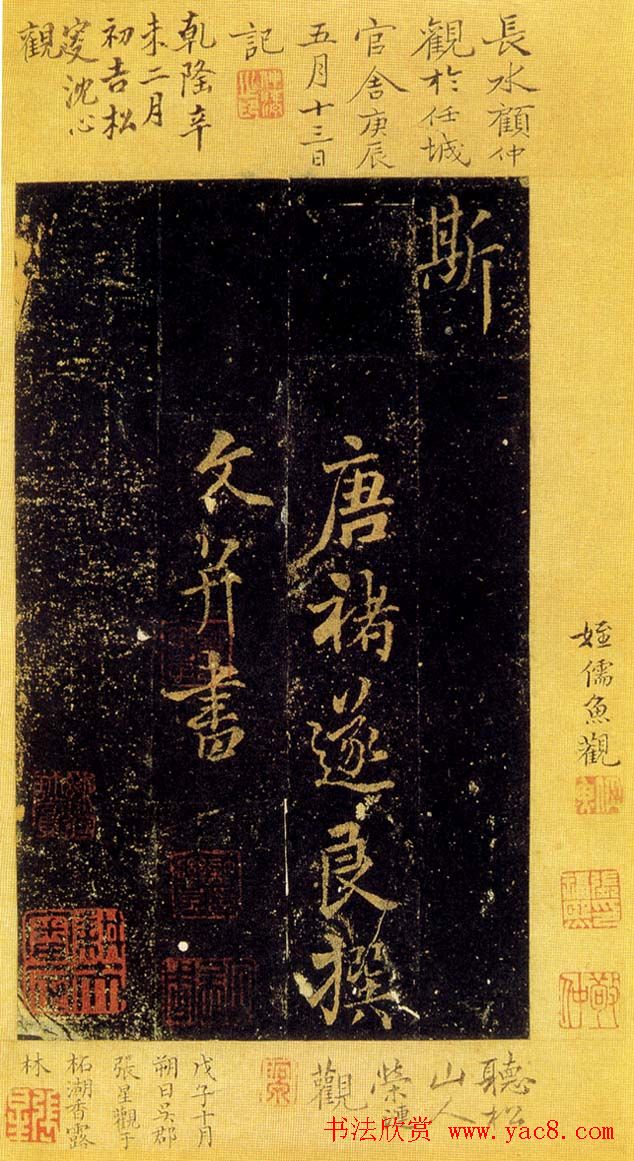 長水顧仲
觀於任城
官舍庚辰
五月十三日
記
乾隆辛
未二月
初吉松
窆沈心
觀
斯
唐褚遂良撰
文并書
姪儒魚觀
聽松
山人
觀
戊子十月
朔日吳郡
張星觀于
柘湖香露
林
书法欣赏 www.yac8.com